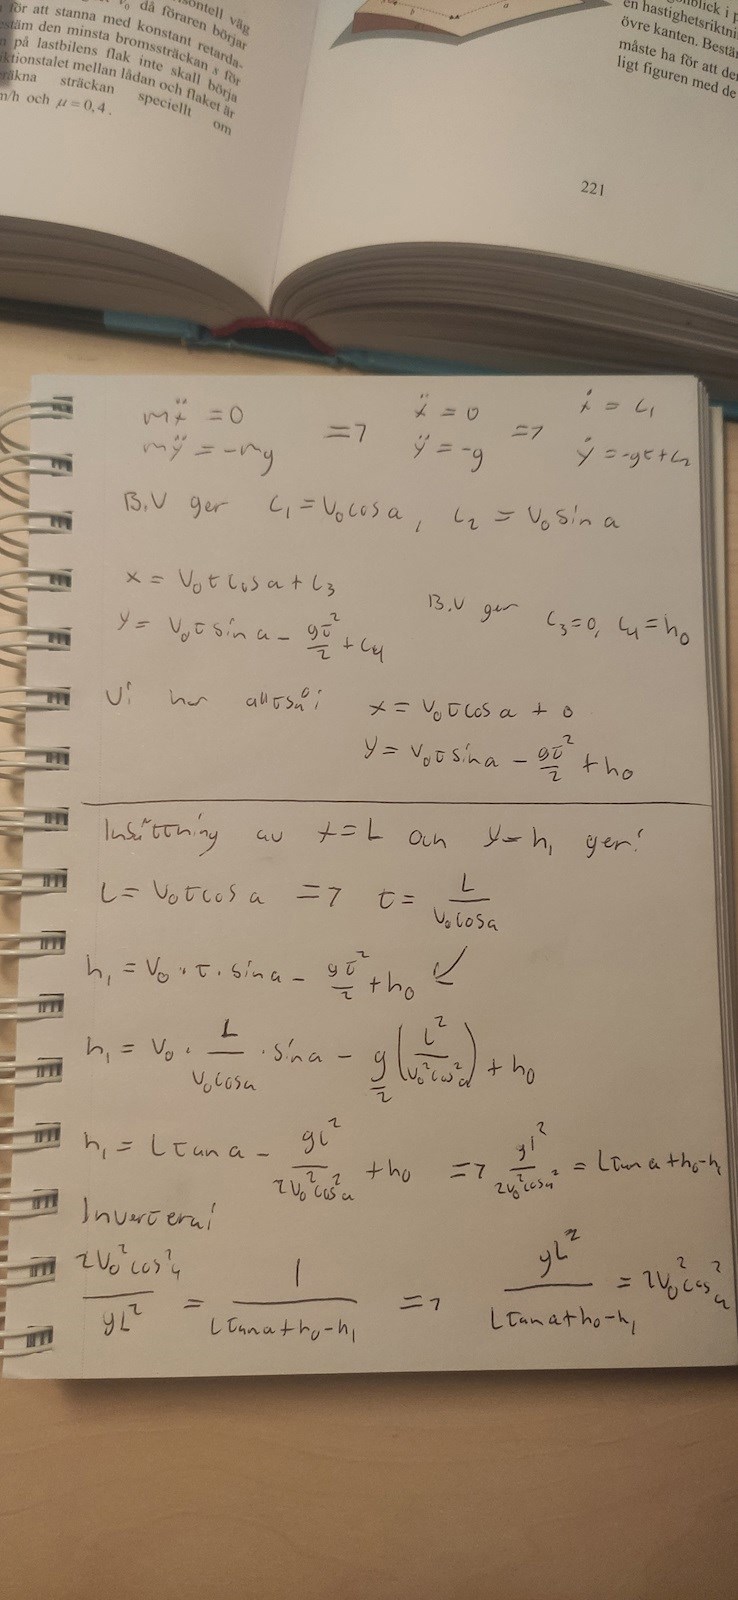 v₀ då föraren börjar
för att stanna med konstant retarda-
stäm den minsta bromssträckan s för
n på lastbilens flak inte skall börja
ktionstalet mellan lådan och flaket är
räkna sträckan speciellt om
m/h och μ = 0,4.
en hastighetsriktni
övre kanten. Bestä
måste ha för att de
ligt figuren med de
221
mẍ = 0 => ẍ = 0 => ẋ = c₁
mÿ = -mg ÿ = -g ẏ = -gt + c₂
B.V ger c₁ = v₀ cos a, c₂ = v₀ sin a
x = v₀ t cos a + c₃
y = v₀ t sin a - gt²/2 + c₄
B.V ger c₃ = 0, c₄ = h₀
Vi har alltså: x = v₀ t cos a + 0
y = v₀ t sin a - gt²/2 + h₀
Insättning av x = L och y = h₁ ger:
L = v₀ t cos a => t = L/(v₀ cos a)
h₁ = v₀ · t · sin a - gt²/2 + h₀ ↙
h₁ = v₀ · L/(v₀ cos a) · sin a - g/2 (L²/(v₀² cos² a)) + h₀
h₁ = L tan a - gL²/(2v₀² cos² a) + h₀ => gL²/(2v₀² cos² a) = L tan a + h₀ - h₁
Invertera:
2v₀² cos² a/(gL²) = 1/(L tan a + h₀ - h₁) => gL²/(L tan a + h₀ - h₁) = 2v₀² cos² a